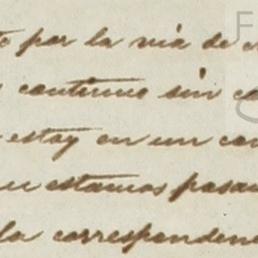 por la via de
continuo sin
estoy en un
estamos pasan
la corresponden